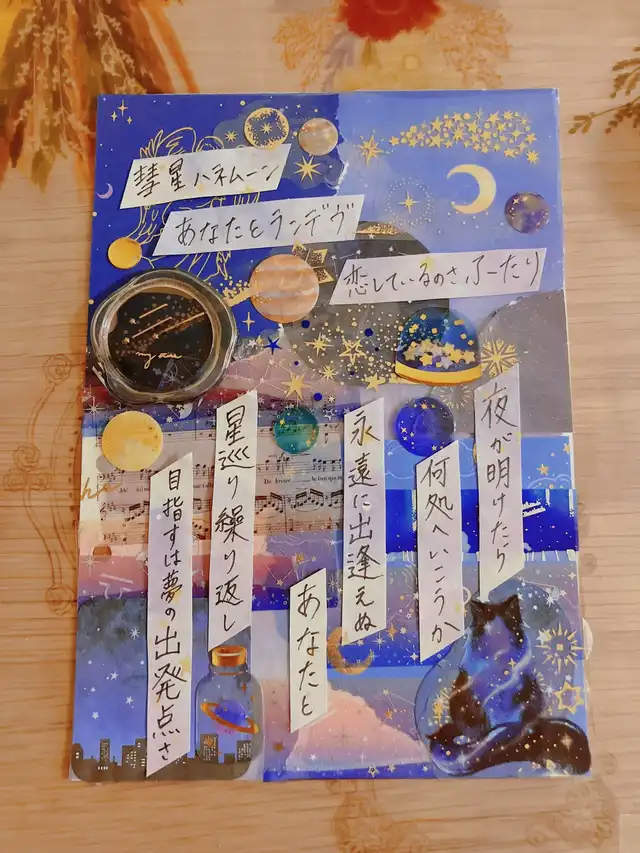 彗星ハネムーン
あなたとランデヴ
恋しているのさふーたり
夜が明けたら
何処へいこうか
永遠に出逢えぬ
あなたと
星巡り繰り返し
目指すは夢の出発点さ